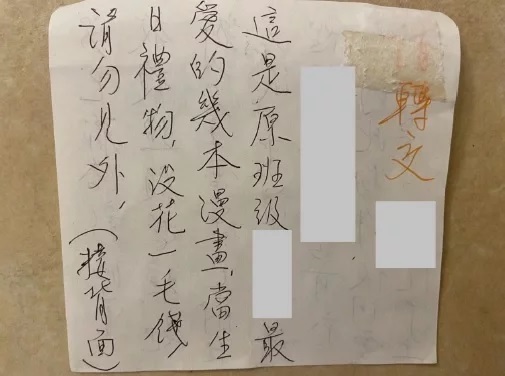 轉交
這是原班級最
愛的幾本漫畫,當生
日禮物,没花一毛錢,
請勿見外,(接背面)